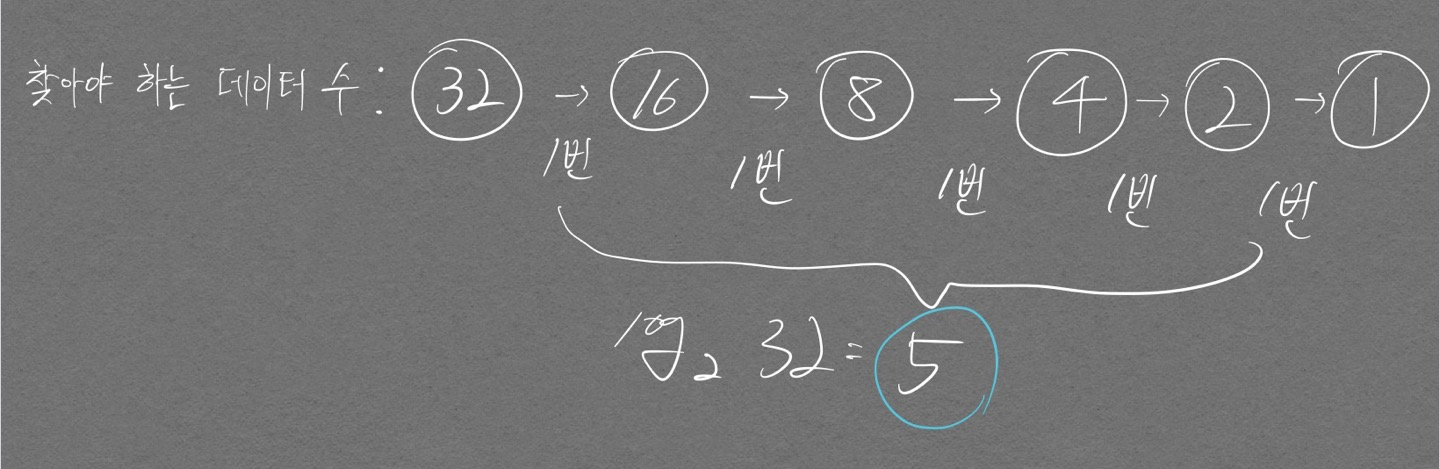 찾아야 하는 데이터 수 : 32 → 16 → 8 → 4 → 2 → 1
1번 1번 1번 1번 1번
log₂ 32 = 5